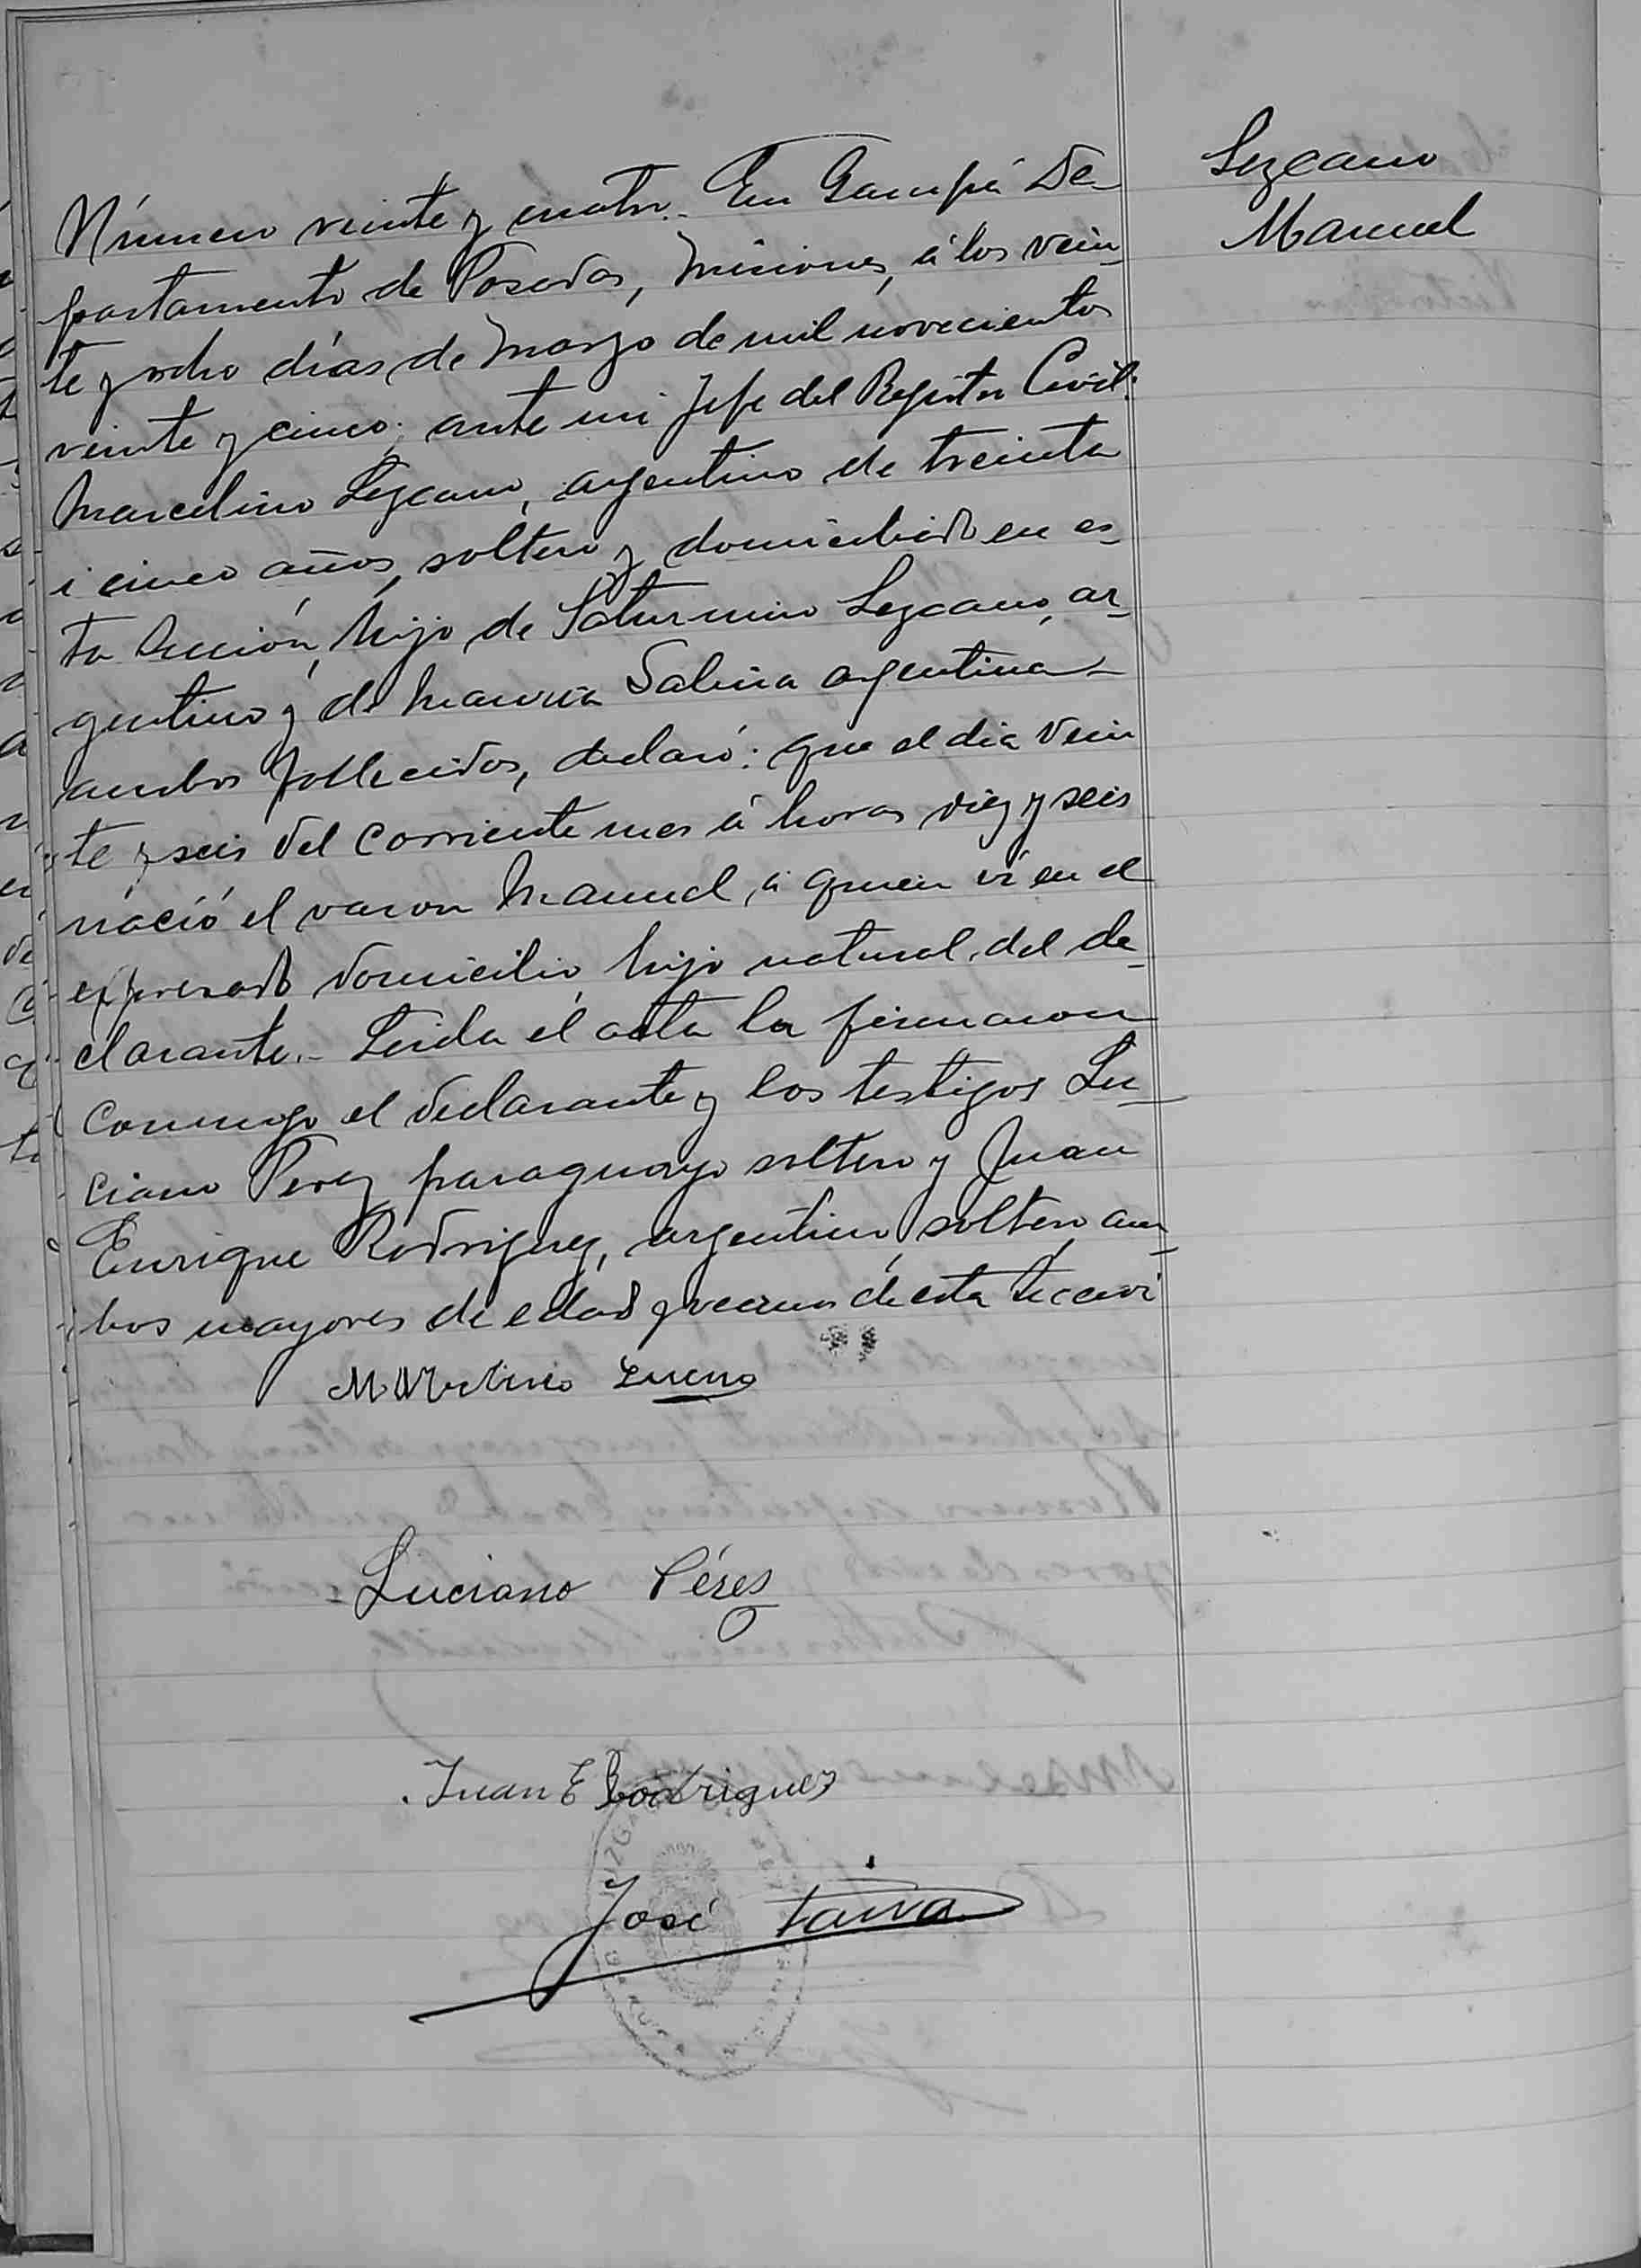 Lezcano
Manuel
Número veinte y cuatro.- En Garupá De-
partamento de Posadas, Misiones, á los vein-
te y ocho días de Marzo de mil novecientos
veinte y cinco; ante mi Jefe del Registro Civil:
Marcelino Lezcano, argentino de treinta
i cinco años, soltero y domiciliado en es-
ta Sección, hijo de Saturnino Lezcano, ar-
gentino y de Mauria Salina argentina
ambos fallecidos, declaró: que el dia vein
te y seis del corriente mes á horas diez y seis
nació el varon Manuel, á quien ví en el
expresado domicilio, hijo natural del de-
clarante.- Leida el acta la firmaron
conmigo el declarante y los testigos Lu-
ciano Perez paraguayo soltero y Juan
Enrique Rodriguez, argentino, soltero, am-
bos mayores de edad y vecinos de esta Sección
Luciano Pérez
Juan E Rodriguez
José Paiva